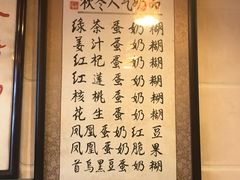 秋冬人气奶
绿茶蛋奶糊
姜汁蛋奶糊
红杞蛋奶糊
红莲蛋奶糊
核桃蛋奶糊
花生蛋奶糊
凤凰蛋奶红豆
凤凰蛋奶脆果
首乌黑豆蛋奶糊